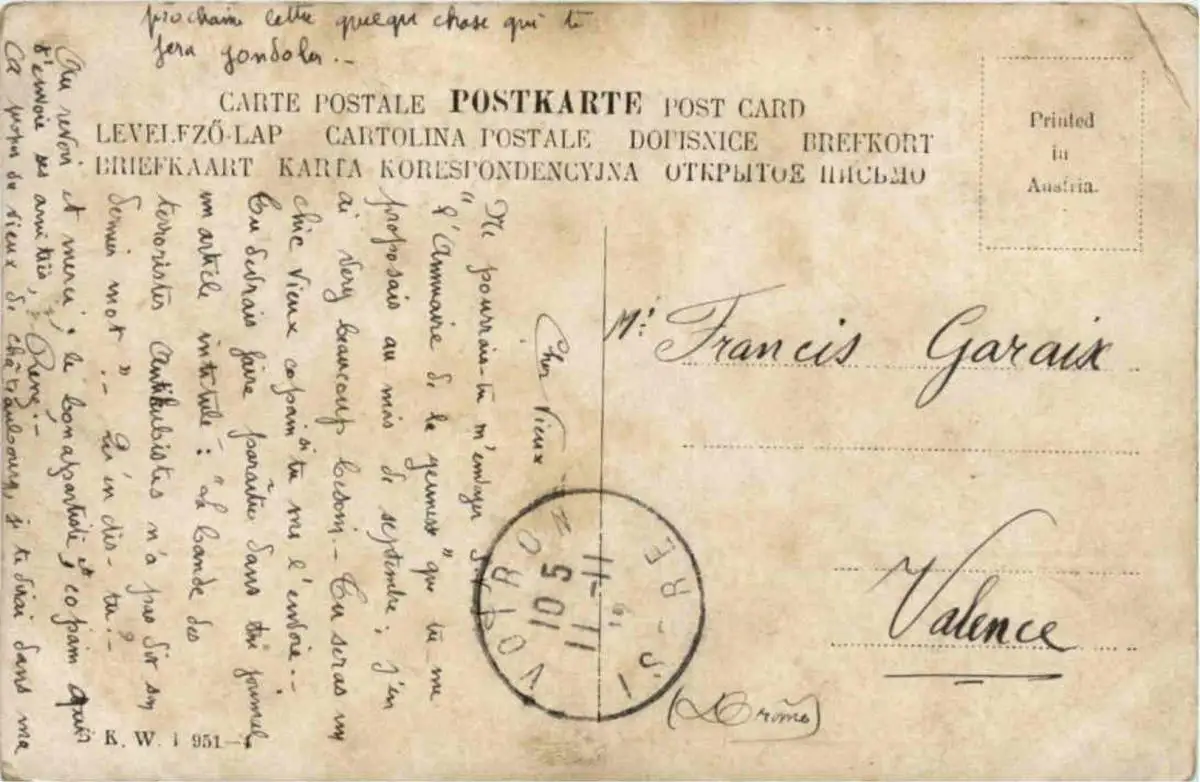 CARTE POSTALE POSTKARTE POST CARD
LEVELEZŐ-LAP CARTOLINA POSTALE DOPISNICE BREFKORT
BRIEFKAART KARTA KORESPONDENCYJNA ОТКРЫТОЕ ПИСЬМО
Printed
in
Austria.
Mr Francis Garaix
Valence
(Drôme)
VOIRON
10 5
11 - 11
Cher Vieux
Ne pourrais-tu m'envoyer
"l'Annuaire de la jeunesse" que tu me
proposais au mois de septembre; j'en
ai very beaucoup besoin. - Tu seras un
chic vieux copain si tu me l'envoie. -
Tu devrais faire paraître dans ton journal
un article intitulé: "La bande des
terroristes antikubistes n'a pas dit son
dernier mot". - Qu'en dis-tu? -
Au revoir et merci; le bonapartiste, et copain
t'envoie ses amitiés, René. -
du vieux de châteaubourg, je te dirai dans ma
prochaine lettre quelque chose qui te
fera gondoler. -
K. W. I 951-